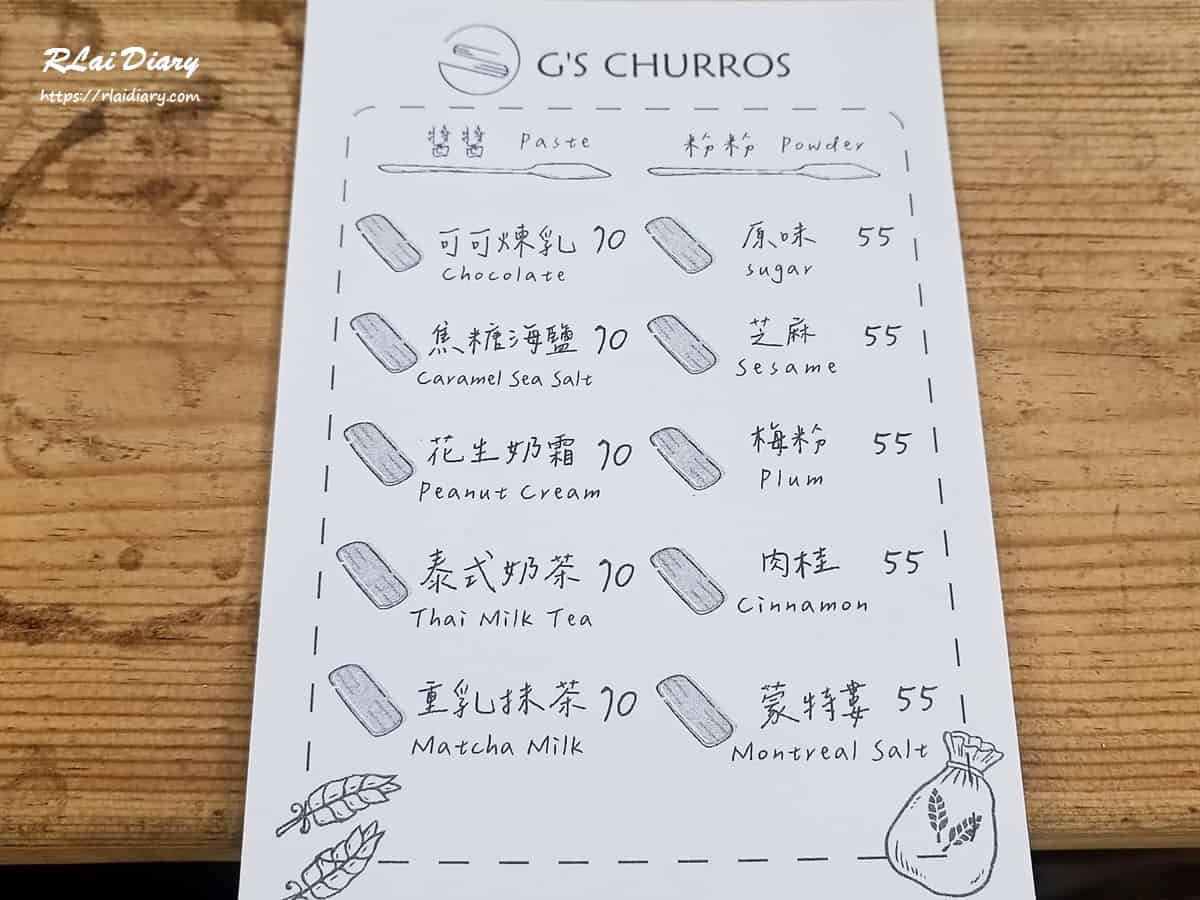 RLai Diary
https://rlaidiary.com
G'S CHURROS
醬醬 Paste
粉粉 Powder
可可煉乳 70
Chocolate
原味 55
sugar
焦糖海鹽 70
Caramel Sea Salt
芝麻 55
Sesame
花生奶霜 70
Peanut Cream
梅粉 55
Plum
泰式奶茶 70
Thai Milk Tea
肉桂 55
Cinnamon
重乳抹茶 70
Matcha Milk
蒙特婁 55
Montreal Salt